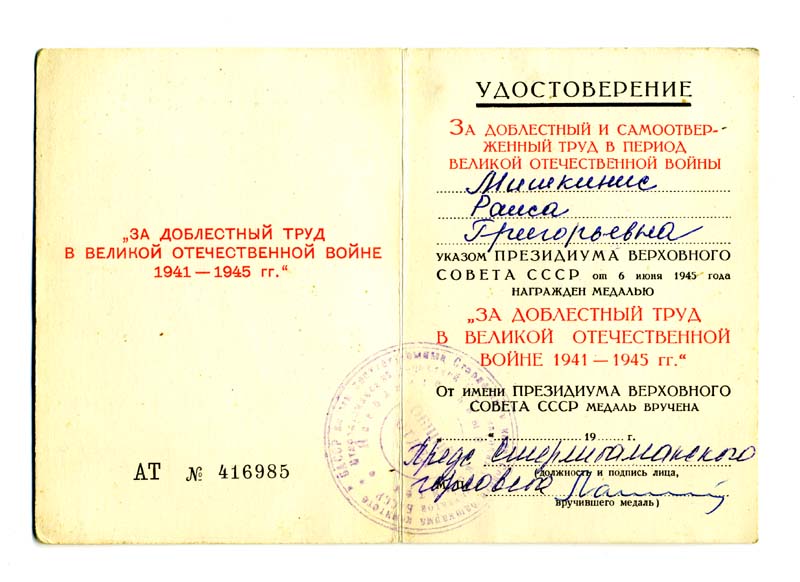 „ЗА ДОБЛЕСТНЫЙ ТРУД
В ВЕЛИКОЙ ОТЕЧЕСТВЕННОЙ ВОЙНЕ
1941 — 1945 гг.“
АТ № 416985
УДОСТОВЕРЕНИЕ
ЗА ДОБЛЕСТНЫЙ И САМООТВЕР-
ЖЕННЫЙ ТРУД В ПЕРИОД
ВЕЛИКОЙ ОТЕЧЕСТВЕННОЙ ВОЙНЫ
Мишкинис
Раиса
Григорьевна
УКАЗОМ ПРЕЗИДИУМА ВЕРХОВНОГО
СОВЕТА СССР от 6 июня 1945 года
НАГРАЖДЕН МЕДАЛЬЮ
„ЗА ДОБЛЕСТНЫЙ ТРУД
В ВЕЛИКОЙ ОТЕЧЕСТВЕННОЙ
ВОЙНЕ 1941 — 1945 гг.“
От имени ПРЕЗИДИУМА ВЕРХОВНОГО
СОВЕТА СССР МЕДАЛЬ ВРУЧЕНА
„ “ 19 г.
Пред Стерлитаманского
(должность и подпись лица,
горсовета
вручившего медаль)